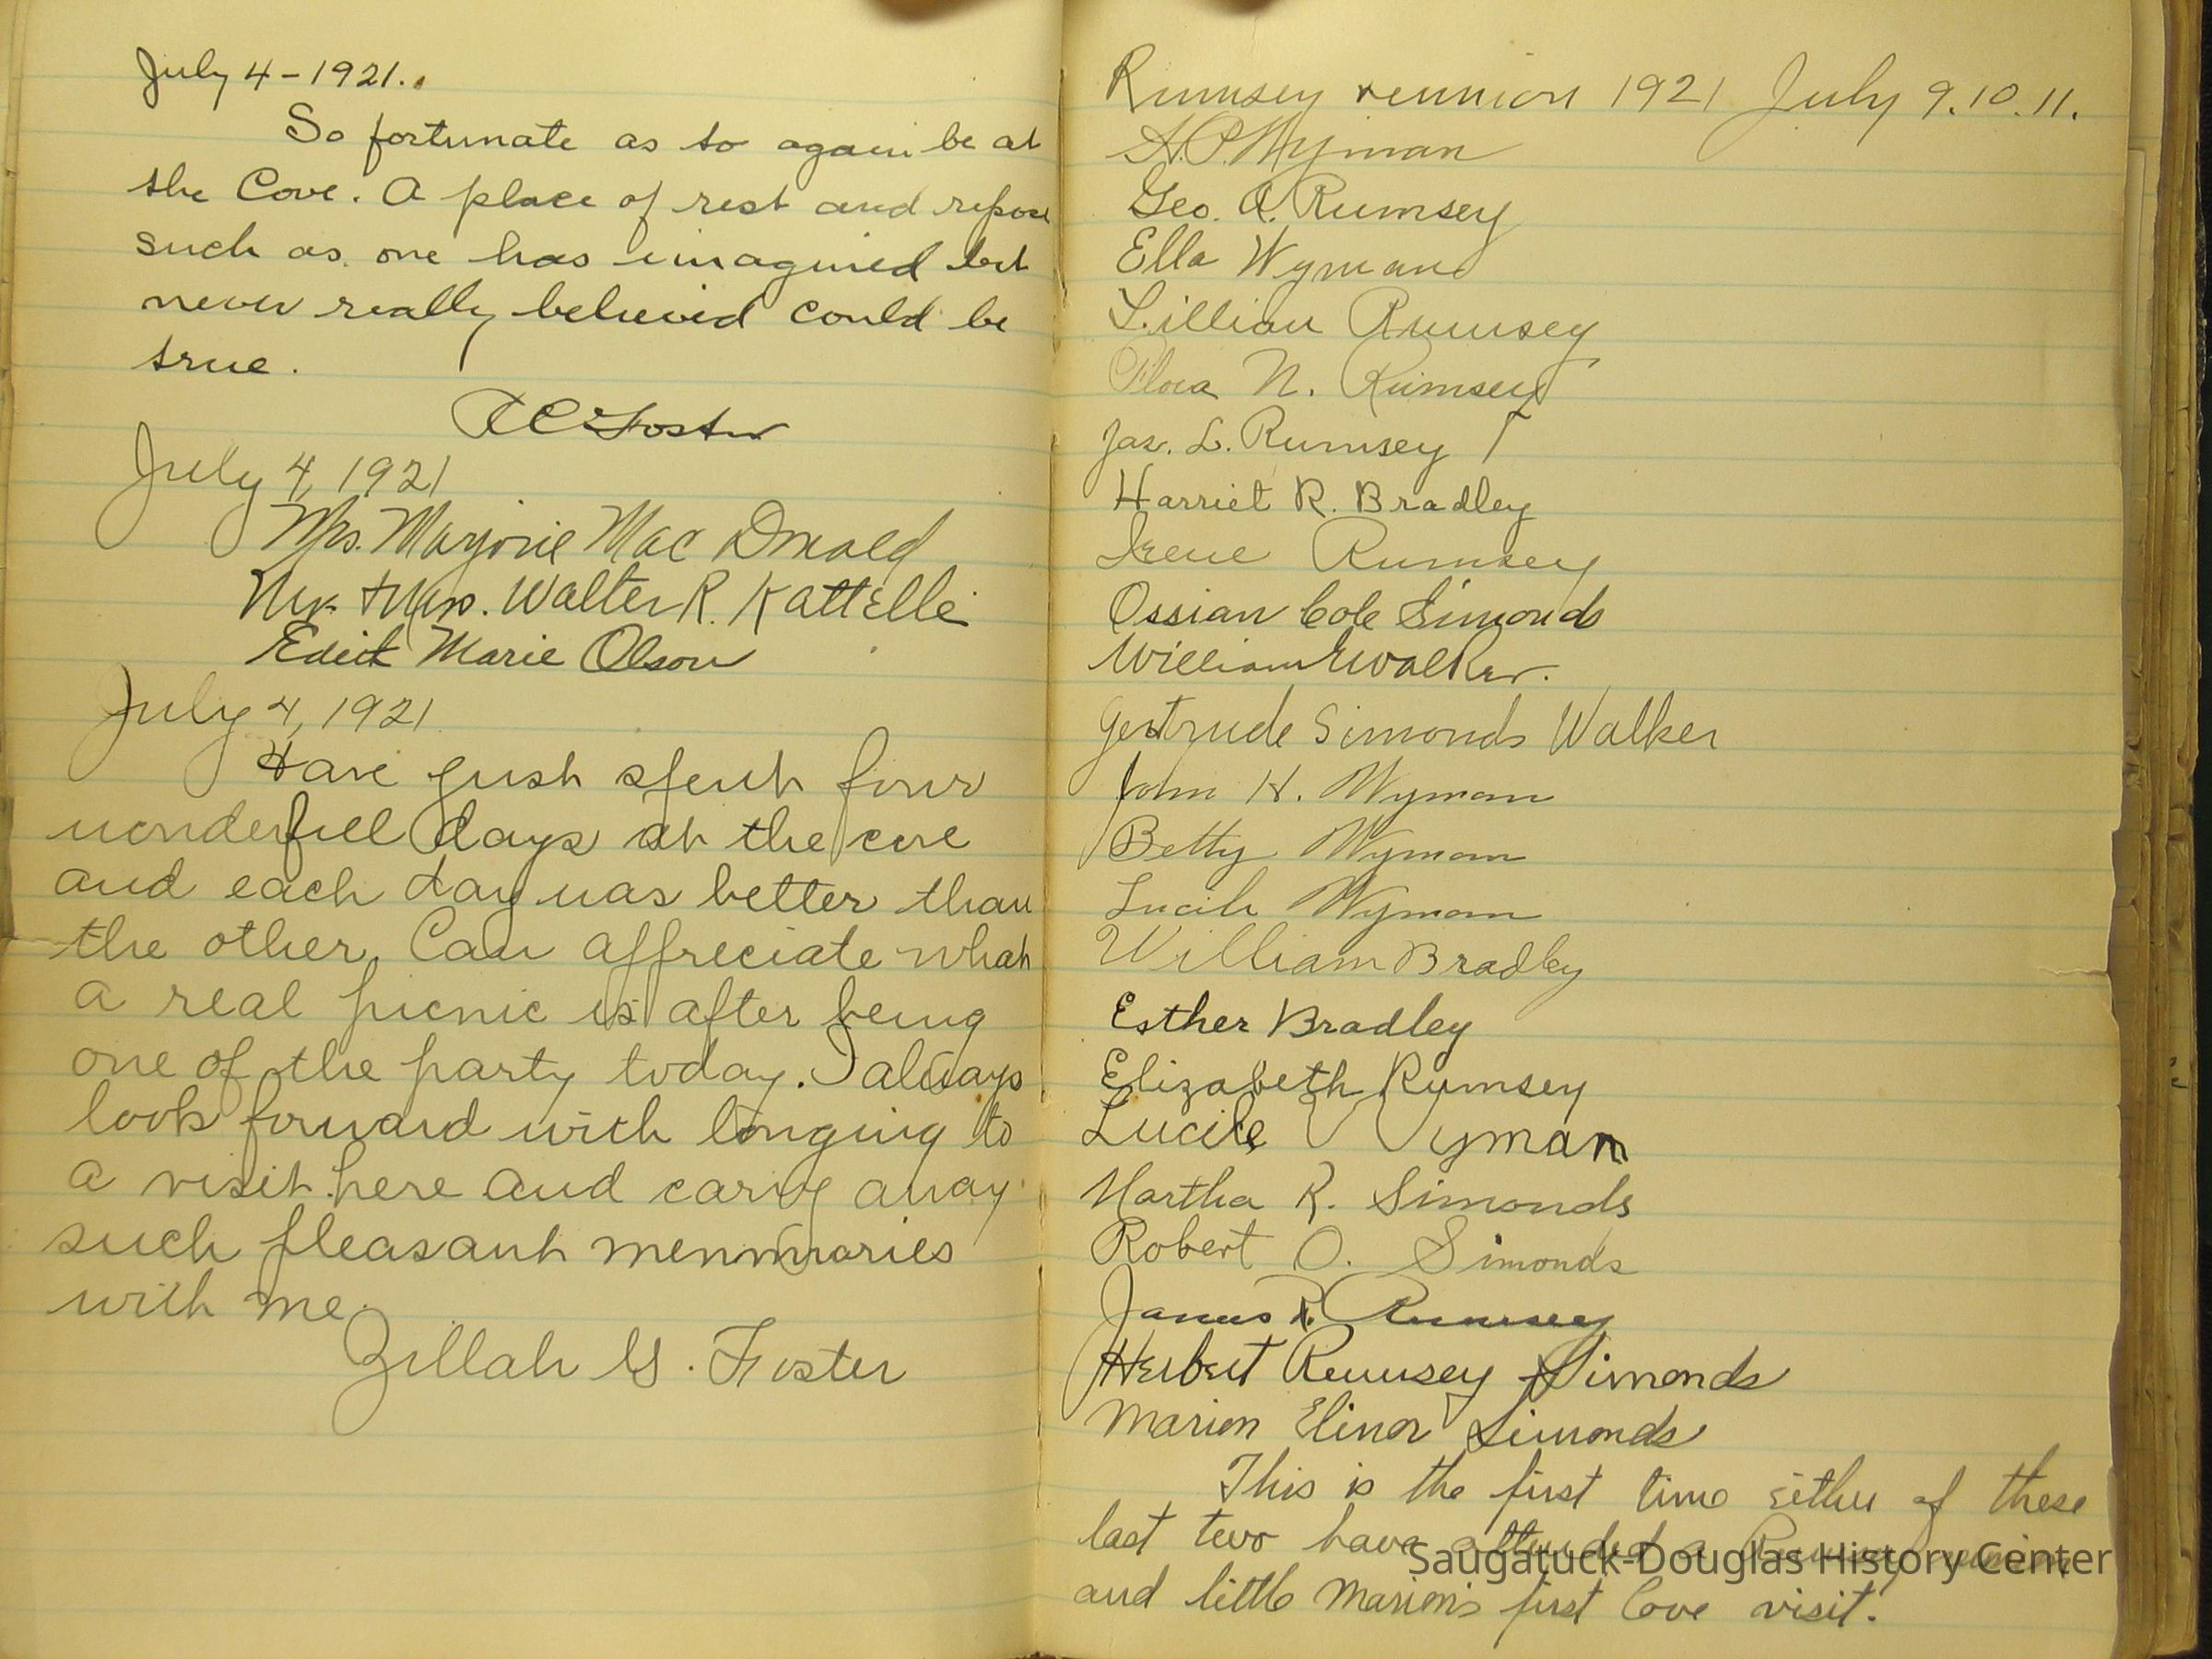 July 4-1921.
So fortunate as to again be at
the Cove. A place of rest and repose
such as one has imagined but
never really believed could be
true.
RC Foster
July 4, 1921
Mrs. Marjorie MacDonald
Mr. + Mrs. Walter R. Kattelle
Edith Marie Olson
July 4, 1921
Have just spent four
wonderful days at the cove
and each day was better than
the other. Can appreciate what
a real picnic is after being
one of the party today. I always
look forward with longing to
a visit here and carry away
such pleasant memmories
with me.
Zillah G. Foster
Rumsey reunion 1921 July 9.10.11.
A.P. Wyman
Geo. A. Rumsey
Ella Wyman
Lillian Rumsey
Flora N. Rumsey
Jas. L. Rumsey
Harriet R. Bradley
Irene Rumsey
Ossian Cole Simonds
William Walker.
Gertrude Simonds Walker
John H. Wyman
Betty Wyman
Lucile Wyman
William Bradley
Esther Bradley
Elizabeth Rumsey
Lucile Wyman
Martha R. Simonds
Robert O. Simonds
James R. Rumsey
Herbert Rumsey Simonds
Marion Elinor Simonds
This is the first time either of these
last two have attended a Rumsey reunion
and little Marion's first Cove visit.
Saugatuck-Douglas History Center